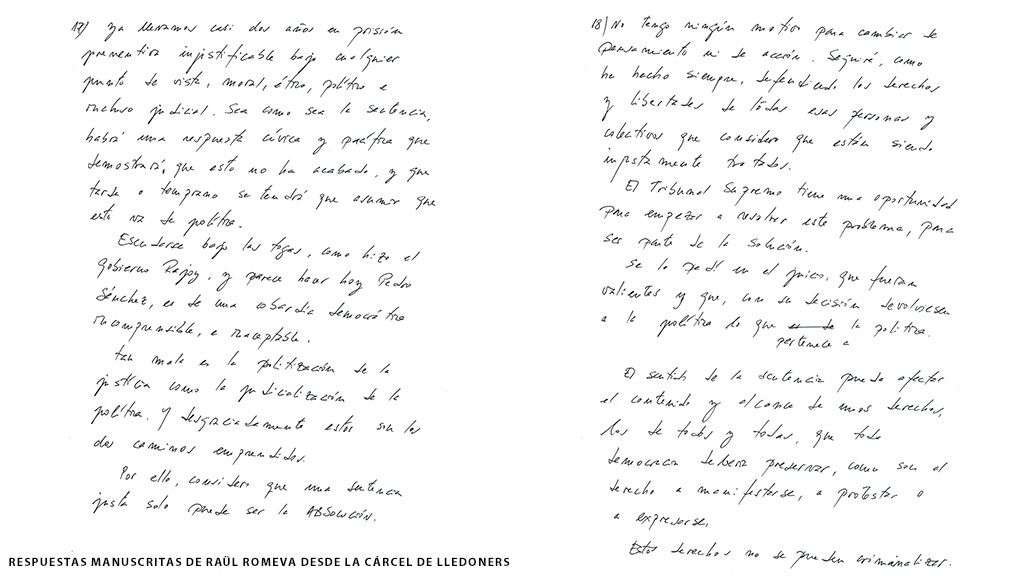 17) Ya llevamos casi dos años en prisión
preventiva injustificable bajo cualquier
punto de vista, moral, ético, político e
incluso judicial. Sea como sea la sentencia,
habrá una respuesta cívica y pacífica que
demostrará, que esto no ha acabado, y que
tarde o temprano se tendrá que asumir que
esto va de política.
Esconderse bajo las togas, como hizo el
Gobierno Rajoy, y parece hacer hoy Pedro
Sánchez, es de una cobardía democrática
incomprensible, e inaceptable.
Tan mala es la politización de la
justícia como la judicialización de la
política. Y desgraciadamente estos son los
dos caminos emprendidos.
Por ello, considero que una sentencia
justa solo puede ser la ABSOLUCIÓN.
18) No tengo ningún motivo para cambiar de
pensamiento ni de acción. Seguiré, como
he hecho siempre, defendiendo los derechos
y libertades de todas esas personas y
colectivos que considero que están siendo
injustamente tratados.
El Tribunal Supremo tiene una oportunidad
para empezar a resolver este problema, para
ser parte de la solución.
Se lo pedí en el juicio, que fueran
valientes y que, con su decisión devolviesen
a la política lo que es de la política.
pertenece a
El sentido de la sentencia puede afectar
el contenido y alcance de unos derechos,
los de todos y todas, que toda
democracia debería preservar, como son el
derecho a manifestarse, a protestar o
a expresarse.
Estos derechos no se pueden criminalizar.
RESPUESTAS MANUSCRITAS DE RAÜL ROMEVA DESDE LA CÁRCEL DE LLEDONERS